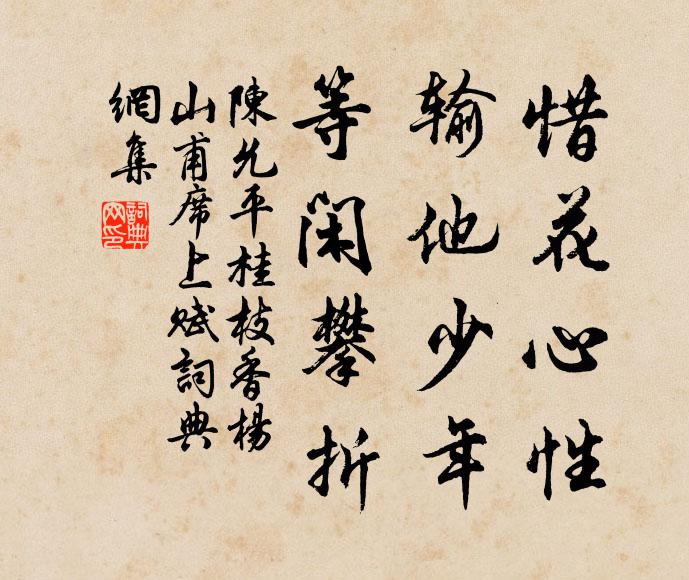 惜花心性
輸他少年
等閑攀折
陳允平桂枝香楊
山甫席上賦詞典
網集
詞典網印